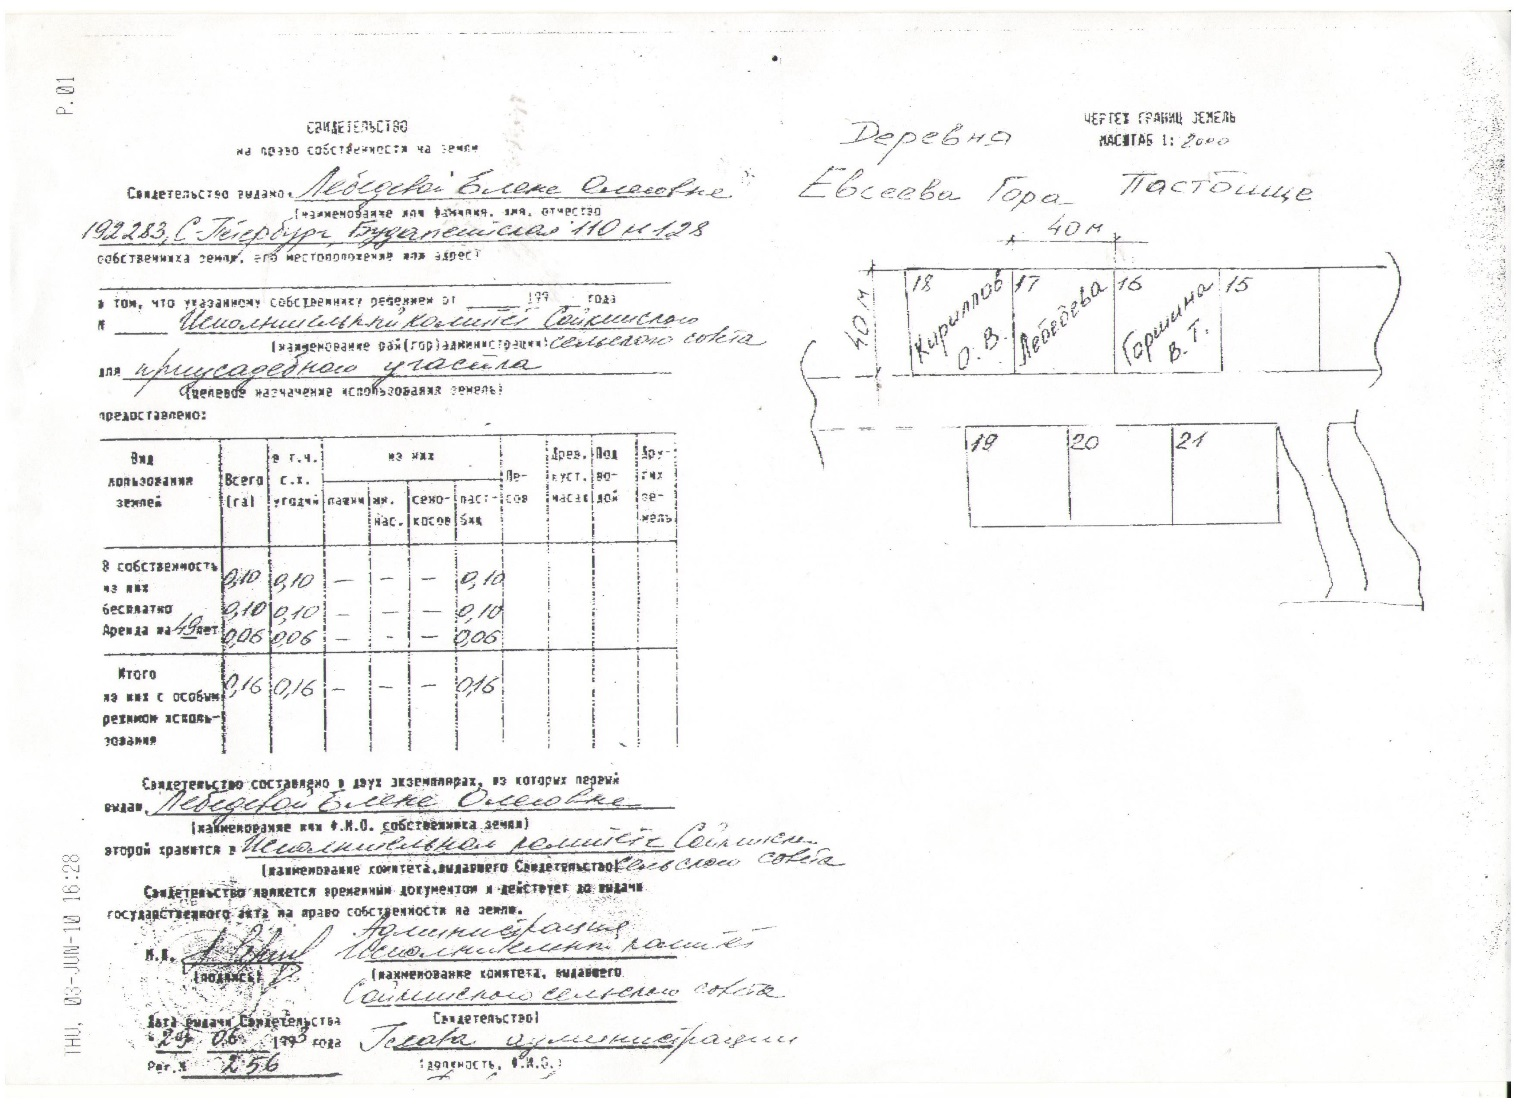 P.01
СВИДЕТЕЛЬСТВО
на право собственности на землю
Свидетельство выдано. Лебедевой Елене Олеговне
(наименование или фамилия, имя, отчество
192283, С-Петербург, Будапештская 110 н 128
собственника земли, его местоположение или адрес)
в том, что указанному собственнику решением от 199 года
N Исполнительный комитет Сойкинского
(наименование рай(гор)администрации) сельского совета
для приусадебного участка
(целевое назначение использования земель)
предоставлено:
Вид пользования землей
Всего (га)
в т.ч. с.х. угодий
из них
пашни
мн. нас.
сено-косов
паст-бищ
Ле-сов
Древ. куст. масах
Под во-дой
Дру-гих зе-мель
В собственность 0,10 0,10 – – – 0,10
из них
бесплатно 0,10 0,10 – – – 0,10
Аренда на 49 лет 0,06 0,06 – – – 0,06
Итого 0,16 0,16 – – – 0,16
из них с особым
режимом исполь-
зования
Свидетельство составлено в двух экземплярах, из которых первый
выдан. Лебедевой Елене Олеговне
(наименование или Ф.И.О. собственника земли)
второй хранится в Исполнительном комитете Сойкинск.
(наименование комитета, выдавшего Свидетельство) сельского совета
Свидетельство является временным документом и действует до выдачи
государственного акта на право собственности на землю.
Администрация
М.П. Исполнительный комитет
(подпись) (наименование комитета, выдавшего
Сойкинского сельского совета
Дата выдачи Свидетельства Свидетельство)
"29" 06 1993 года Глава администрации
Рег.N 256 (должность, Ф.И.О.)
THU, 03-JUN-10 16:28
ЧЕРТЕЖ ГРАНИЦ ЗЕМЕЛЬ
МАСШТАБ 1: 2000
Деревня
Евсеева Гора Пастбище
40 м
40 м
18 Кириллов О. В.
17 Лебедева
16 Горшина В. Т.
15
19 20 21